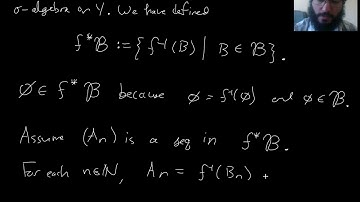 σ-algebra on Y. We have defined
f*ℬ := { f⁻¹(B) | B ∈ ℬ }.
∅ ∈ f*ℬ because ∅ = f⁻¹(∅) and ∅ ∈ ℬ.
Assume (Aₙ) is a seq in f*ℬ.
For each n∈ℕ, Aₙ = f⁻¹(Bₙ)